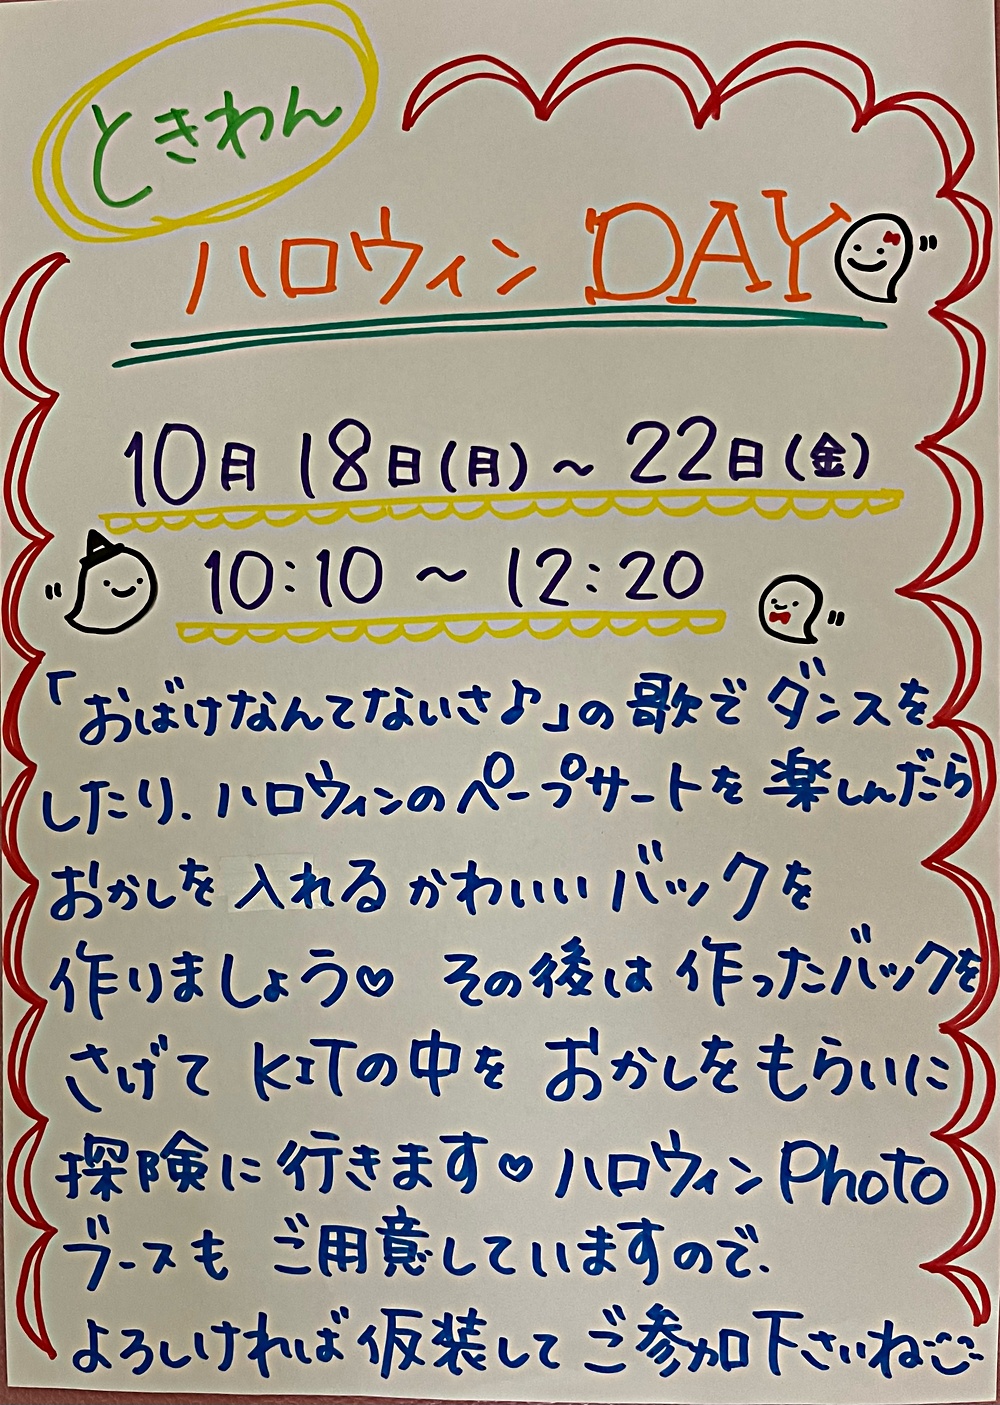 ときわん
ハロウィン DAY
10月 18日(月) ~ 22日(金)
10:10 ~ 12:20
「おばけなんてないさ♪」の歌で ダンスを
したり、ハロウィンのペープサートを 楽しんだら
おかしを 入れる かわいい バックを
作りましょう♡ その後は 作ったバックを
さげて KITの中を おかしをもらいに
探険に 行きます♡ ハロウィン Photo
ブースも ご用意していますので、
よろしければ 仮装して ご参加下さいね